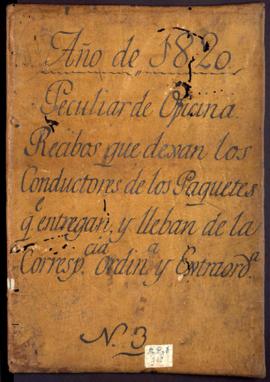 Año de 1820
Peculiar de Oficina.
Recibos que dexan los
Conductores de los Paquetes
q.e entregan, y lleban de la
Corresp.cia Ordin.a y Extraord.a
N. 3